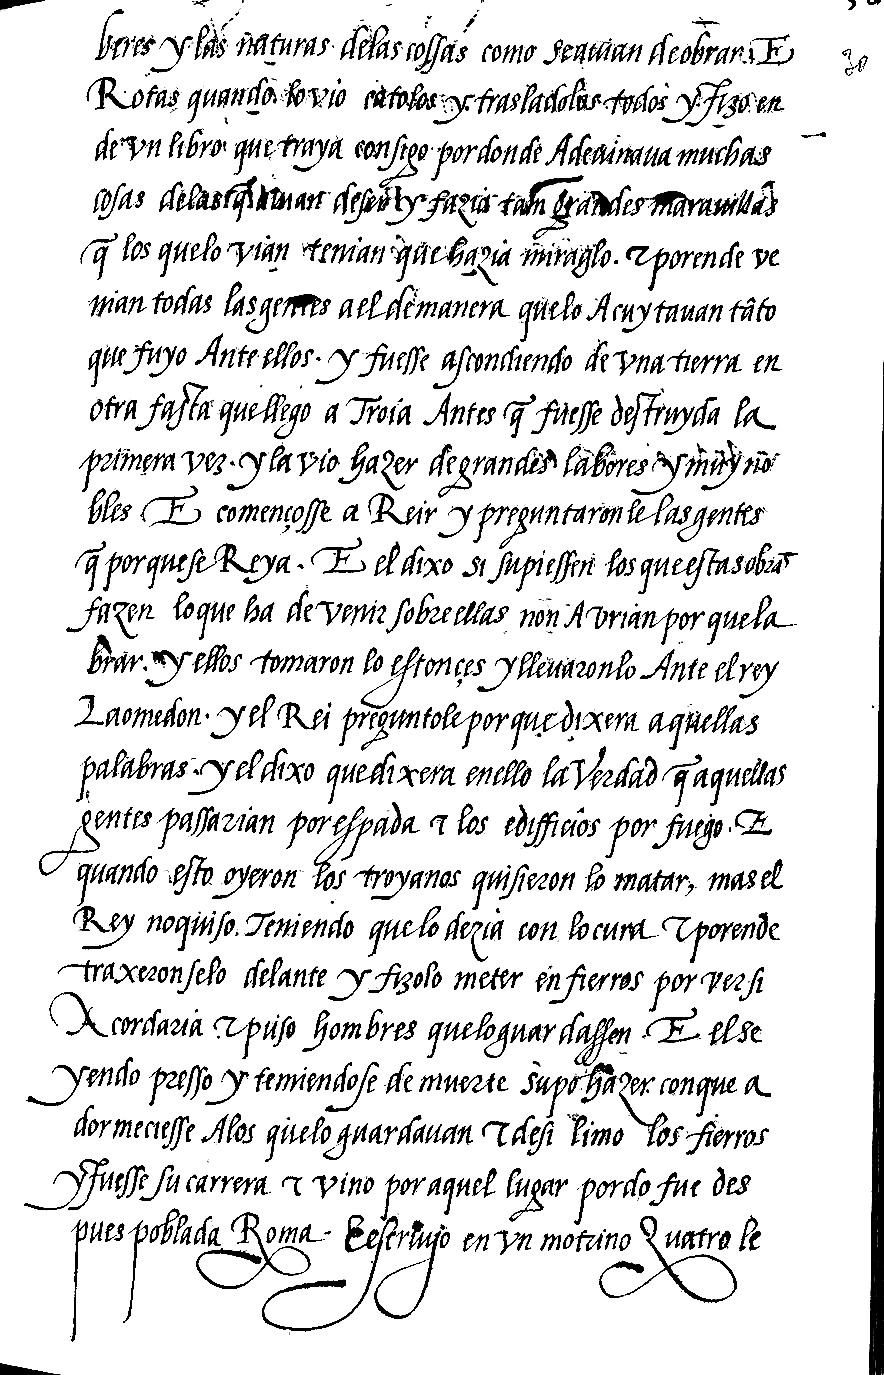 30
beres y las naturas delas cossas como se auian de obrar. E
Rotas quando lo vio catolos y trasladolos todos y fizo en
de vn libro que traya consigo por donde Adeuinaua muchas
cosas delas q̃ auian de seer y fazia tan grandes marauillas
q̃ los quelo vian tenian que hazia miraglo. τ porende ve
nian todas las gentes a el de manera quelo Acuytauan tãto
que fuyo Ante ellos. y fuesse ascondiendo de vna tierra en
otra fasta que llego a Troia Antes q̃ fuesse destruyda la
primera vez. y la vio hazer de grandes labores y muy no
bles E començosse a Reir y preguntaronle las gentes
q̃ por que se Reya. E el dixo si supiessen los que estas obras
fazen lo que ha de venir sobre ellas non Aurian por que la
brar. y ellos tomaron lo estonçes y lleuaronlo Ante el rey
Laomedon. y el Rei preguntole por que dixera aquellas
palabras. y el dixo que dixera en ello la Verdad q̃ aquellas
gentes passarian por espada τ los edifficios por fuego. E
quando esto oyeron los troyanos quisieron lo matar, mas el
Rey no quiso. Teniendo que lo dezia con locura τ porende
traxeronselo delante y fizolo meter en fierros por ver si
Acordaria τ puso hombres quelo guardassen. E el se
yendo presso y temiendose de muerte supo hazer con que a
dormeciesse Alos quelo guardauan τ desi limo los fierros
y fuesse su carrera τ vino por aquel lugar por do fue des
pues poblada Roma. E escriujo en vn Quatro le